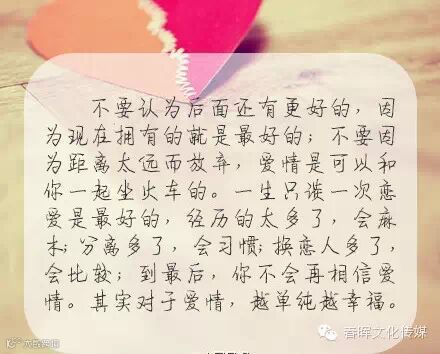 不要认为后面还有更好的，因
为现在拥有的就是最好的；不要因
为距离太远而放弃，爱情是可以和
你一起坐火车的。一生只谈一次恋
爱是最好的，经历的太多了，会麻
木；分离多了，会习惯；换恋人多了，
会比较；到最后，你不会再相信爱
情。其实对于爱情，越单纯越幸福。
春晖文化传媒